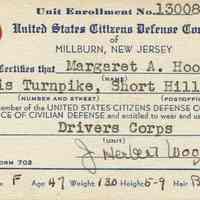 Unit Enrollment No. 13008
United States Citizens Defense Cor
of
MILLBURN, NEW JERSEY
Certifies that Margaret A. Hoo
(NAME)
is Turnpike, Short Hill
(NUMBER AND STREET) (POSTOFFIC
ember of the UNITED STATES CITIZENS DEFENSE C
ICE OF CIVILIAN DEFENSE and entitled to wear and us
Drivers Corps
(Unit)
J. Herbert Woo
ORM 702
F Age 47 Weight 130 5-9 Hair B